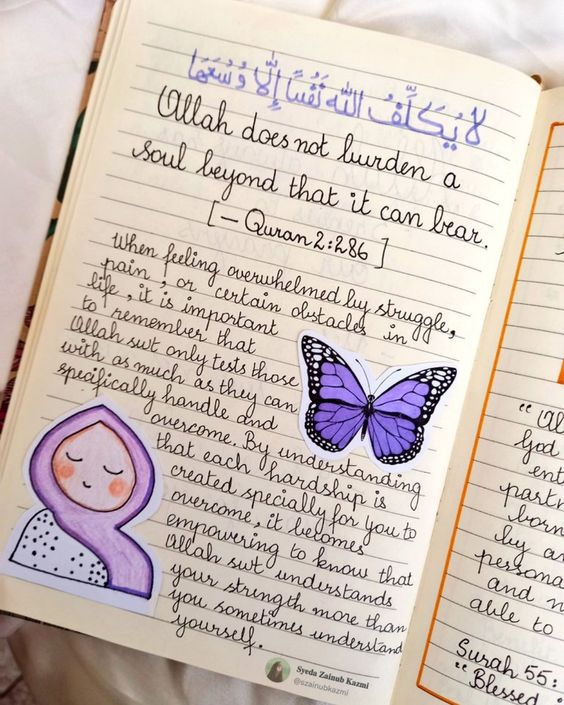 لا يُكَلِّفُ اللهُ نَفْسًا إِلَّا وُسْعَهَا
Allah does not burden a
soul beyond that it can bear.
[— Quran 2:286]
When feeling overwhelmed by struggle,
pain, or certain obstacles in
life, it is important
to remember that
Allah swt only tests those
with as much as they can
specifically handle and
overcome. By understanding
that each hardship is
created specially for you to
overcome, it becomes
empowering to know that
Allah swt understands
your strength more than
you sometimes understand
yourself.
Syeda Zainub Kazmi
@szainubkazmi
God
by
persona
and
able to
Surah 55:
"Blessed